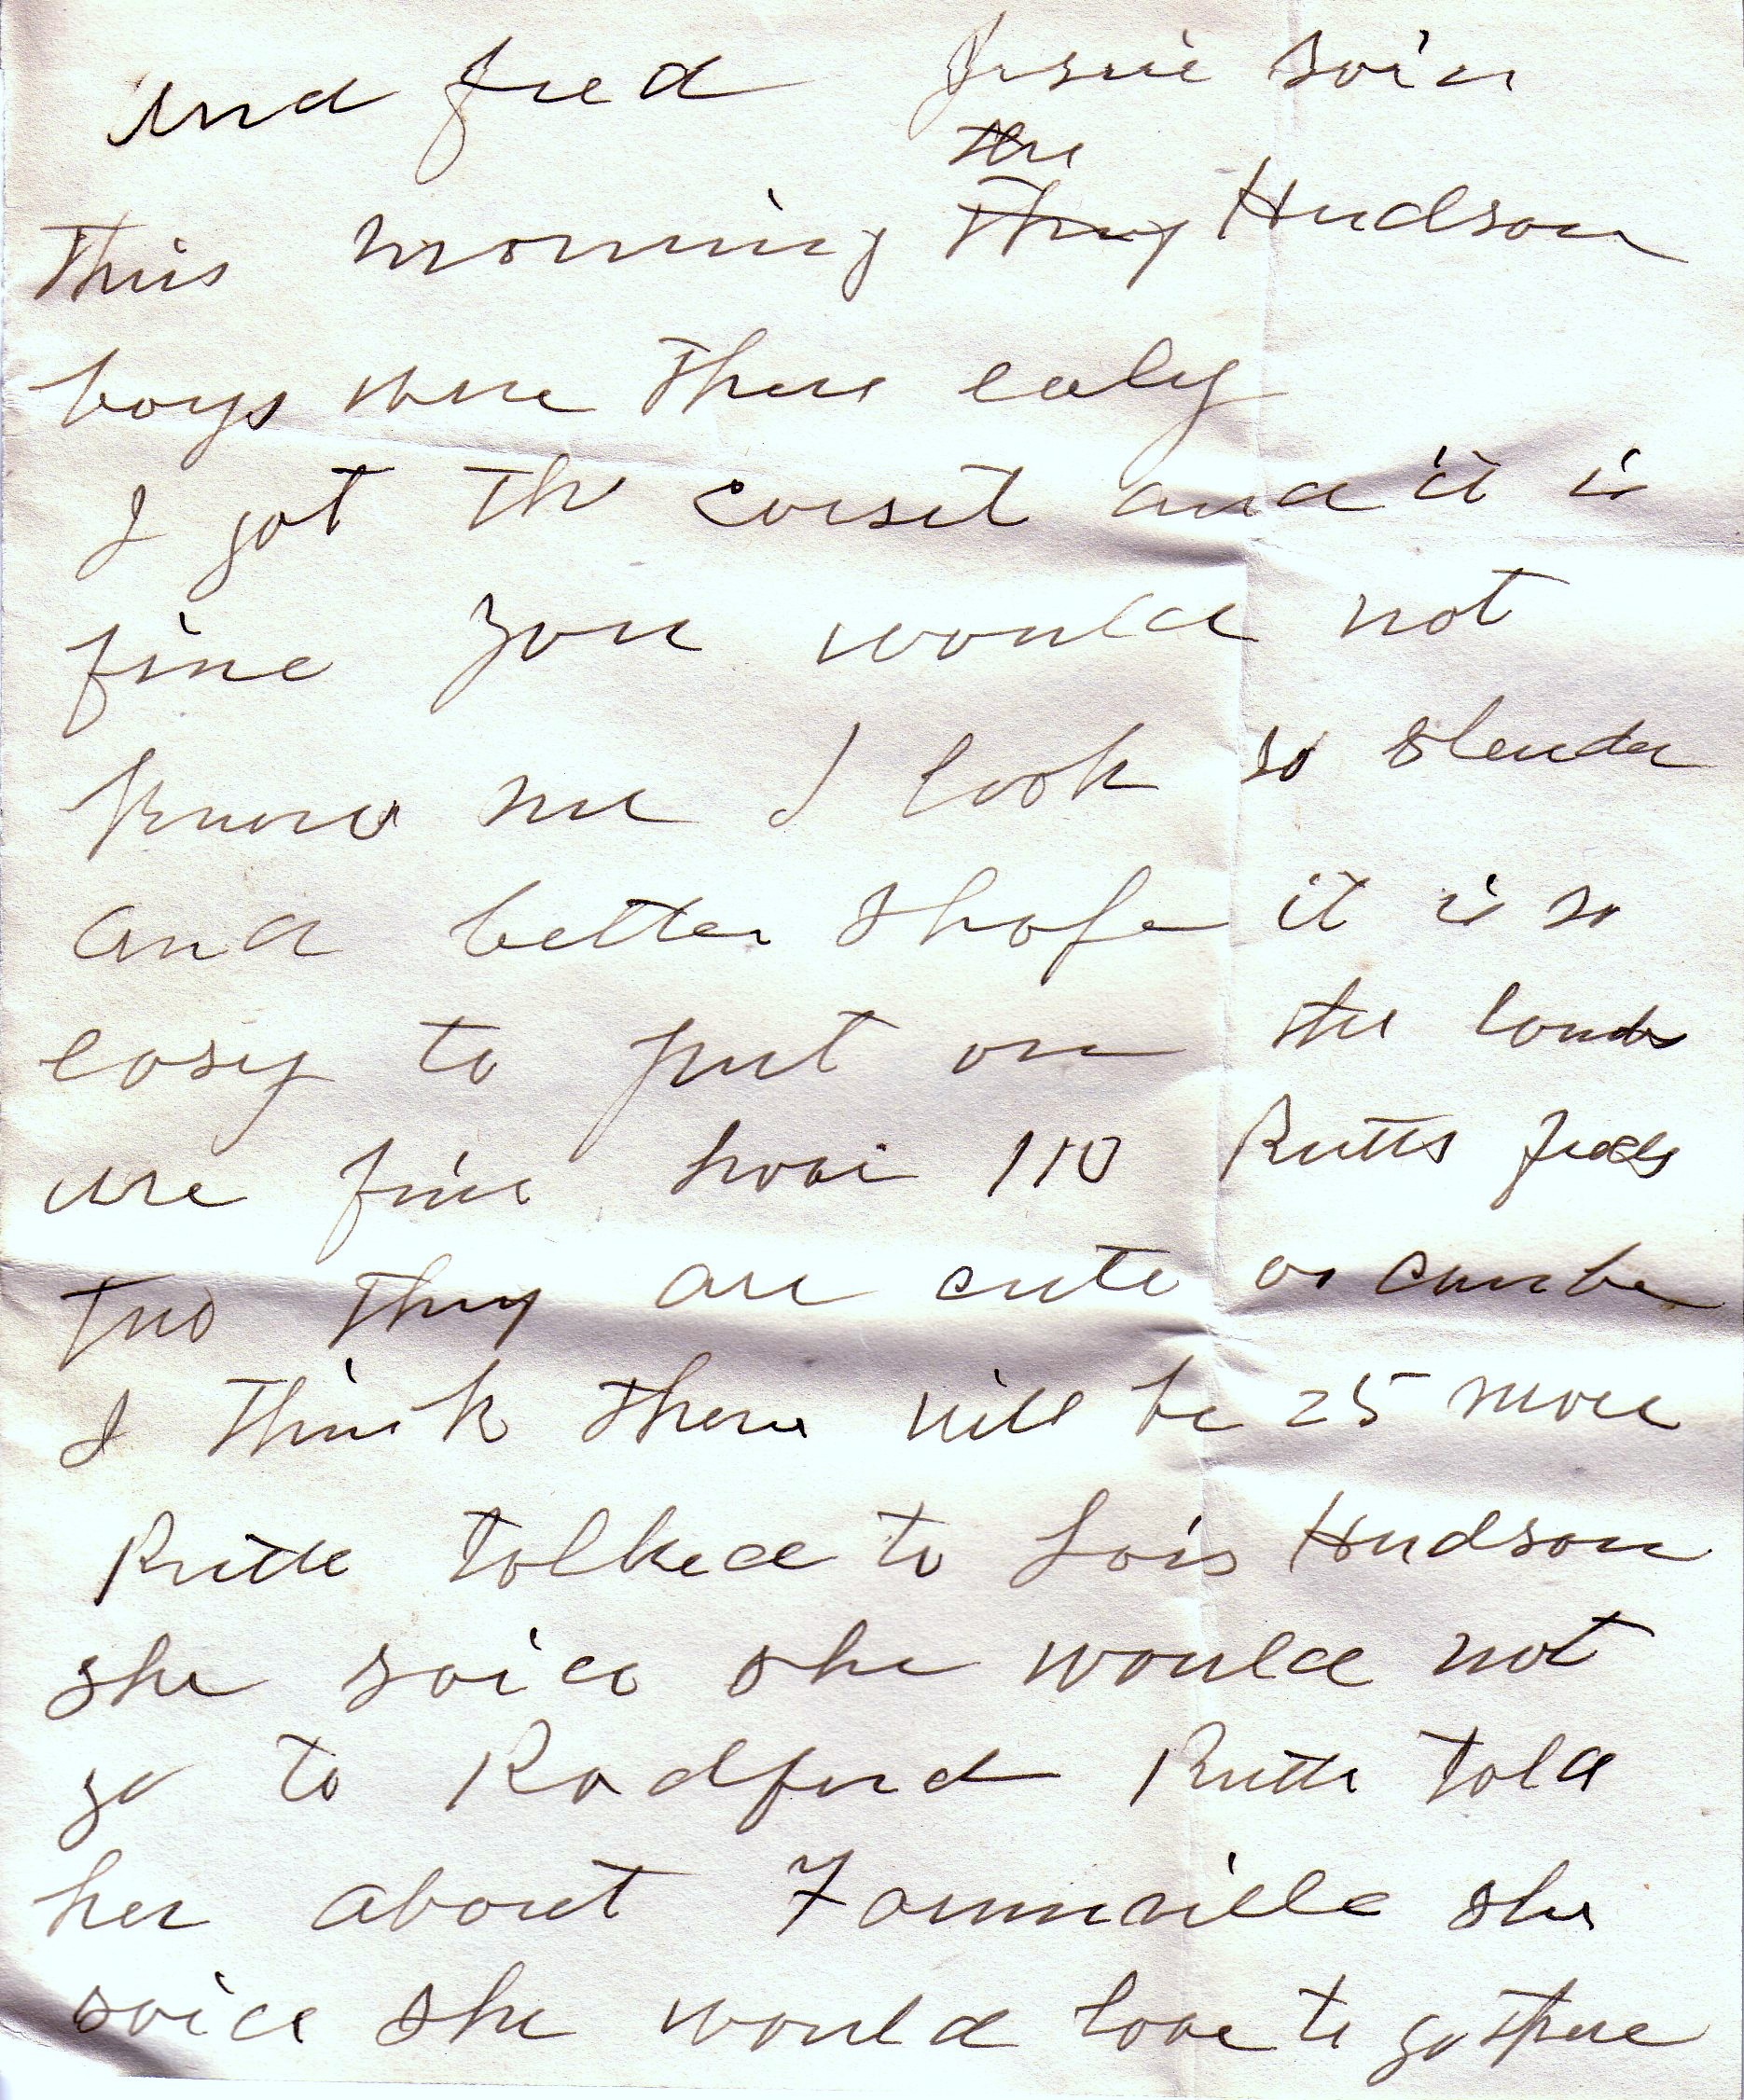 and fred Jessie said
the
this morning they Hudson
boys were there ealy
I got the corset and it is
fine you would not
know me I look so slender
and better shape it is so
easy to put on the lambs
are fine have 110 Ruths feeds
two they are cute as can be
I think there will be 25 more
Ruth tolked to Lois Hudson
she said she would not
go to Radford Ruth told
her about Farmville she
said she would love to go there